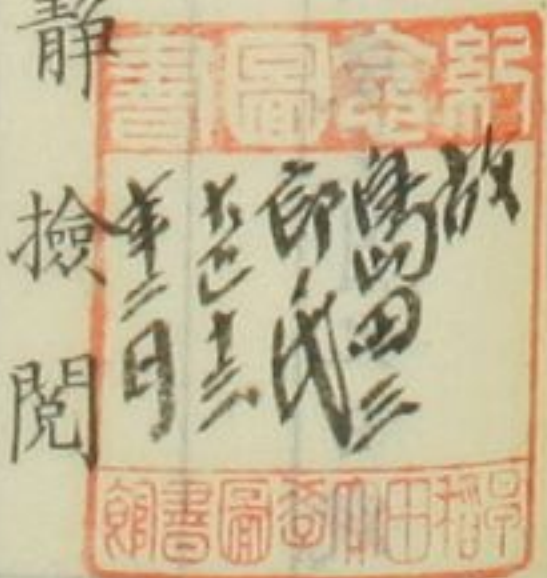 紀念圖書
故
島田三
郎氏
大正十三
年二月
早稻田大學圖書館
靜撿閲